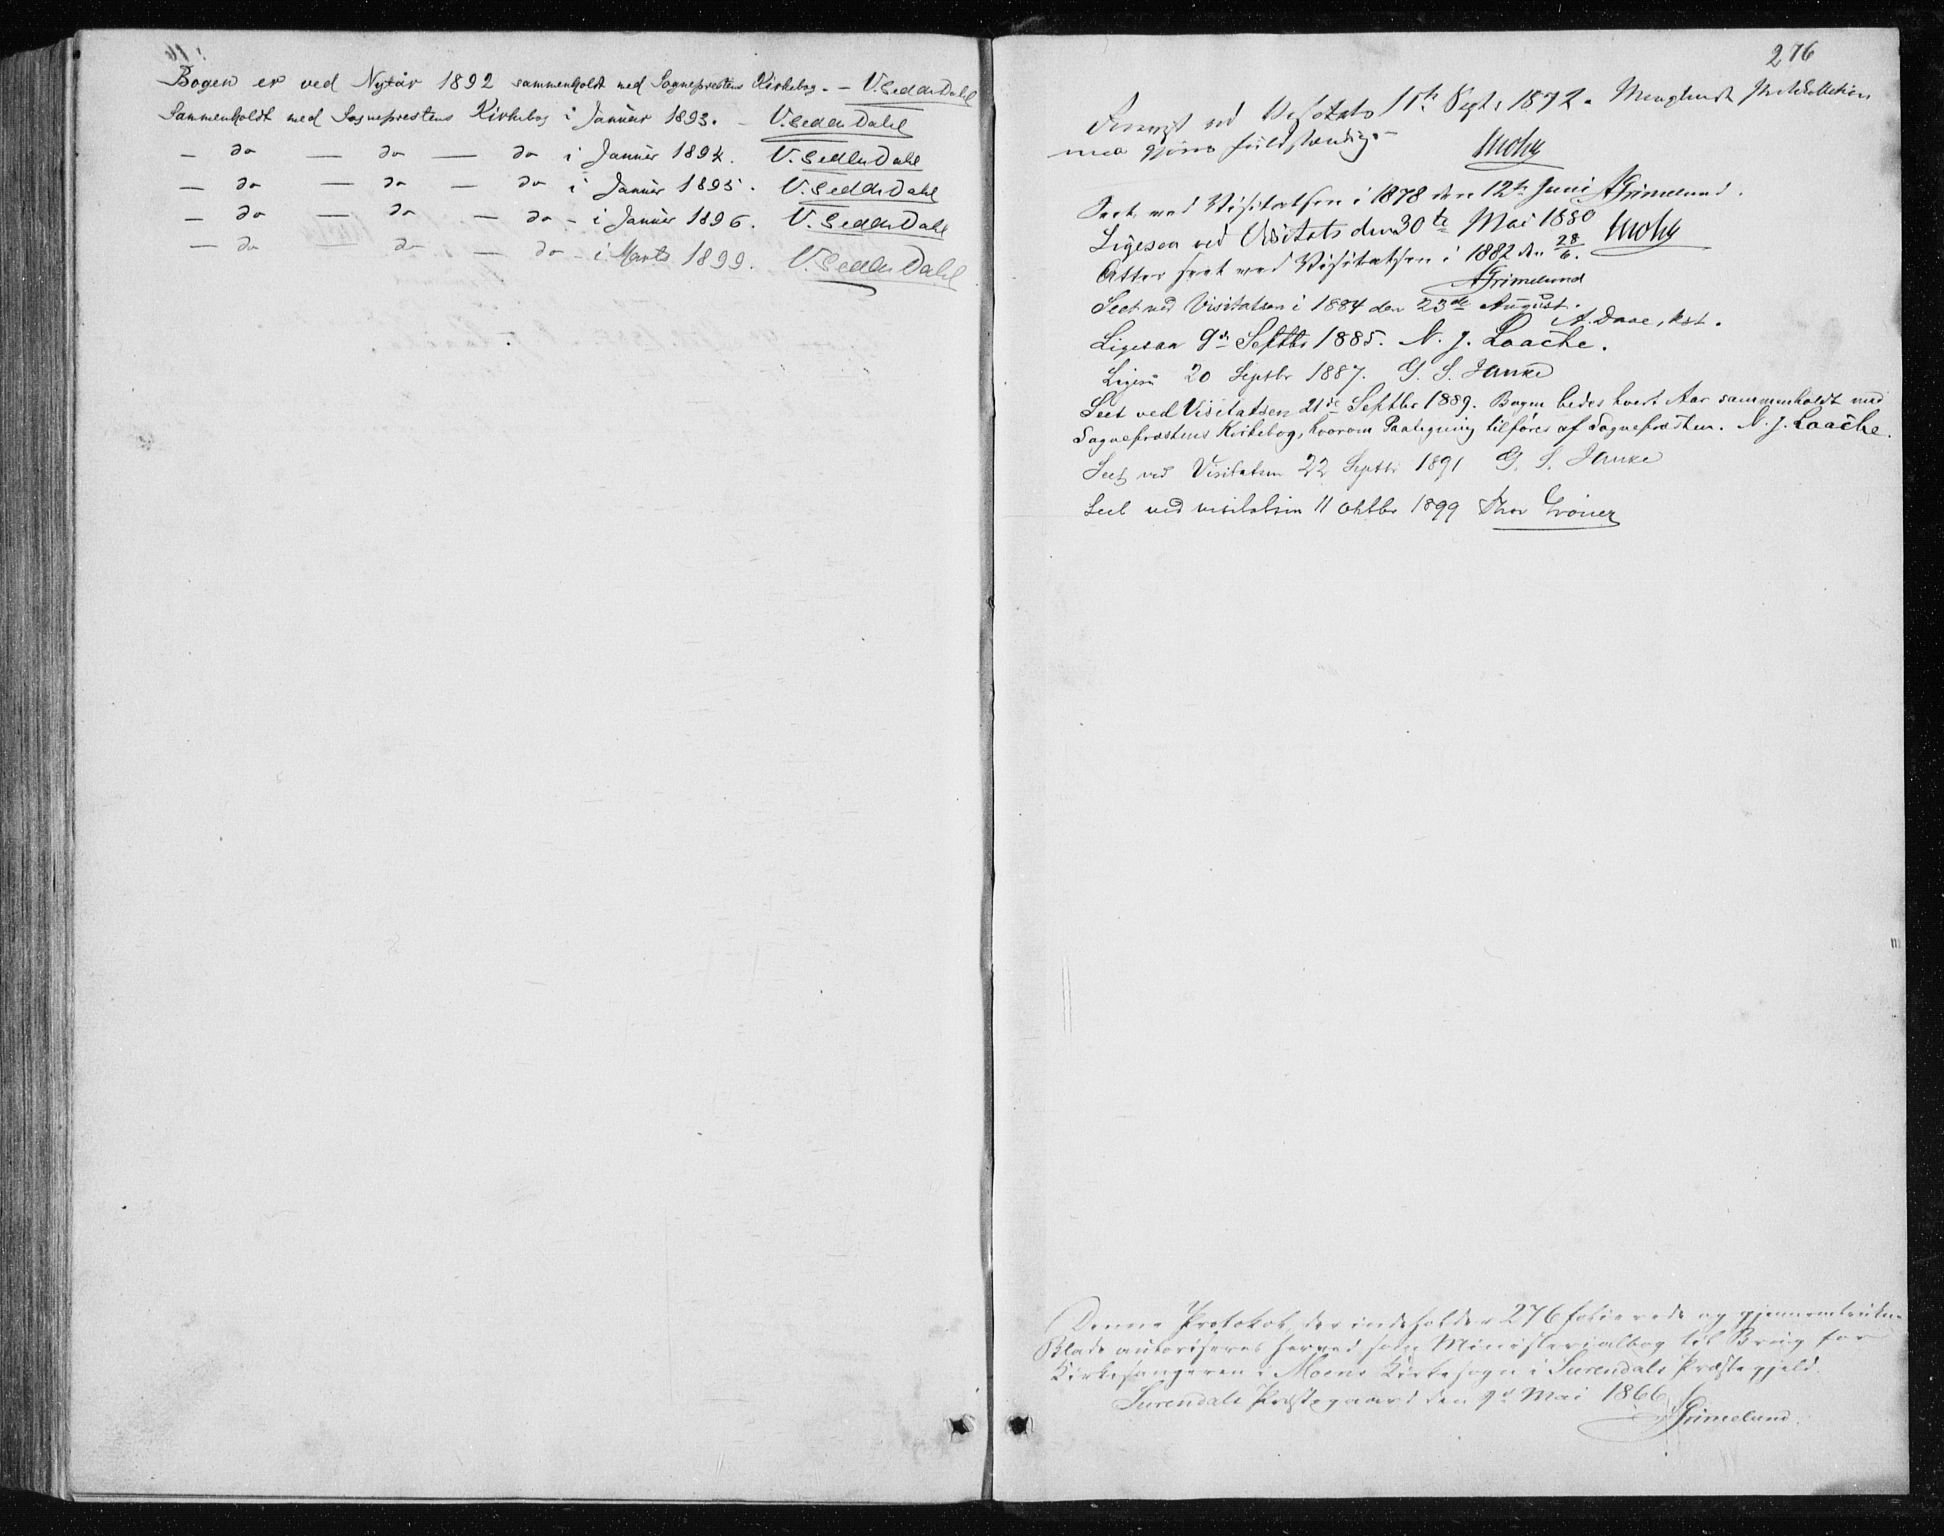 Bogen er ved Nytår 1892 sammenholdt med Sogneprestens Kirkebog. – V. Sedder Dahl
Sammenholdt med Sogneprestens Kirkebog i Januar 1893. – V. Sedder Dahl
– do — do — do i Januar 1894. V. Sedder Dahl
– do — do — do i Januar 1895. V. Sedder Dahl
– do — do — do – i Januar 1896. V. Sedder Dahl
– do do — do – i Marts 1899. V. Sedder Dahl
276
ved Visitats 11te Sept. 1872.
maa gjøres fuldstændig.
Seet ved Visitatsen i 1878 den 12te Juni AGrimelund.
Ligesaa ved Visitats den 30te Mai 1880
Atter seet ved Visitatsen i 1882 den 28/6.
AGrimelund
Seet ved Visitatsen i 1884 den 23de August.
A. Daae, kst.
Ligesaa 9de Septbr 1885. N. J. Laache.
Ligeså 20 Septbr 1887. G. S. Janke
Seet ved Visitatsen 21de Septbr 1889. Bogen bedes hvert Aar sammenholdt med
Sogneprestens Kirkebog, hvorom Paategning tilføres af Sognepresten. N. J. Laache.
Seet ved Visitatsen 22 Septbr 1891 G. S. Janke
Seet ved visitatsen 11 Oktbr 1899 Thor
Denne Protokol, der indeholder 276 folierede og gjennemtrukne
Blade autoriseres herved som Ministerialbog til Brug for
Kirkesangeren i Moens Kirkesogn i Surendals Præstegjeld.
Surendals Præstegaard den 9de Mai 1866
Grimelund.